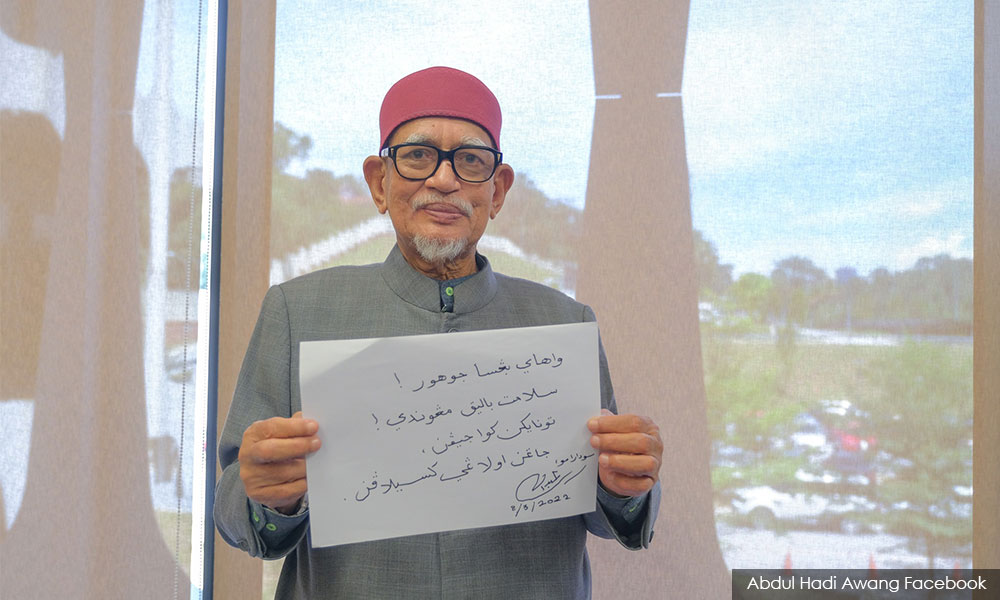 واهاي بڠسا جوهور !
سلامت باليق مڠوندي !
تونايكن كواجيڤن،
جاڠن اولاڠي كسيلاڤن.
سودارامو،
8/3/2022
Abdul Hadi Awang Facebook